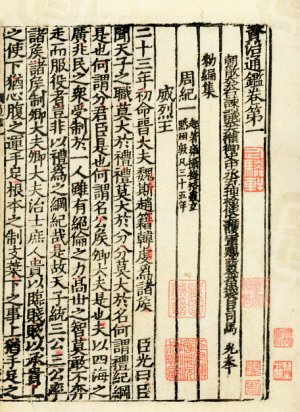 資治通鑑卷第一
朝散大夫右諫議大夫權御史中丞充理檢使上護軍賜紫金魚袋臣司馬 光 奉
勑編集
周紀一 起著雍攝提格盡玄
黓困敦凡三十五年
威烈王
二十三年初命晉大夫魏斯趙籍韓虔爲諸侯 臣光曰臣
聞天子之職莫大於禮禮莫大於分分莫大於名何謂禮紀綱
是也何謂分君臣是也何謂名公侯卿大夫是也夫以四海之
廣兆民之衆受制於一人雖有絶倫之力高世之智莫敢不奔
走而服役者豈非以禮爲之綱紀哉是故天子統三公三公率
諸侯諸侯制卿大夫卿大夫治士庶人貴以臨賤賤以承貴上
之使下猶心腹之運手足根本之制支葉下之事上猶手足之